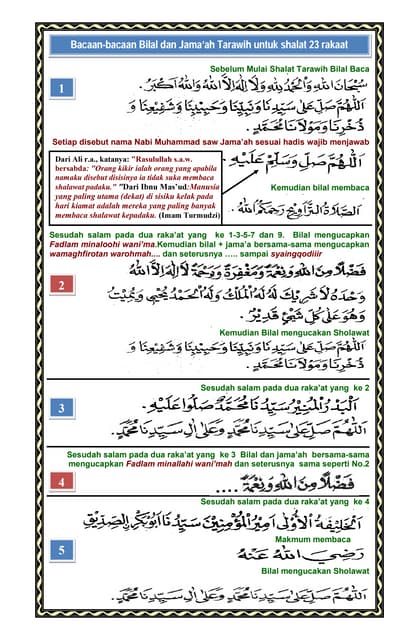 Bacaan-bacaan Bilal dan Jama'ah Tarawih untuk shalat 23 rakaat
Sebelum Mulai Shalat Tarawih Bilal Baca
1
سُبْحَانَ اللهِ وَالْحَمْدُ لِلّٰهِ وَلَا إِلٰهَ إِلَّا اللهُ وَاللهُ أَكْبَرُ.
اَللّٰهُمَّ صَلِّ عَلَى سَيِّدِنَا وَنَبِيِّنَا وَحَبِيْبِنَا وَشَفِيْعِنَا وَ
ذُخْرِنَا وَمَوْلَانَا مُحَمَّدٍ.
Setiap disebut nama Nabi Muhammad saw Jama'ah sesuai hadis wajib menjawab
اَللّٰهُمَّ صَلِّ وَسَلِّمْ عَلَيْهِ
Dari Ali r.a., katanya: "Rasulullah s.a.w.
bersabda: "Orang kikir ialah orang yang apabila
namaku disebut disisinya ia tidak suka membaca
shalawat padaku." "Dari Ibnu Mas'ud:Manusia
yang paling utama (dekat) di sisiku kelak pada
hari kiamat adalah mereka yang paling banyak
membaca shalawat kepadaku. (Imam Turmudzi)
Kemudian bilal membaca
اَلصَّلَاةُ التَّرَاوِيْحِ رَحِمَكُمُ اللهُ
Sesudah salam pada dua raka'at yang ke 1-3-5-7 dan 9. Bilal mengucapkan
Fadlam minaloohi wani'ma.Kemudian bilal + jama'a bersama-sama mengucapkan
wamaghfirotan warohmah.... dan seterusnya ..... sampai syaingqodiiir
2
فَضْلًا مِنَ اللهِ وَنِعْمَةً وَمَغْفِرَةً وَرَحْمَةً لَا إِلٰهَ إِلَّا اللهُ
وَحْدَهُ لَا شَرِيْكَ لَهُ لَهُ الْمُلْكُ وَلَهُ الْحَمْدُ يُحْيِي وَيُمِيْتُ
وَهُوَ عَلَى كُلِّ شَيْءٍ قَدِيْرٌ.
Kemudian Bilal mengucakan Sholawat
اَللّٰهُمَّ صَلِّ عَلَى سَيِّدِنَا وَنَبِيِّنَا وَحَبِيْبِنَا وَشَفِيْعِنَا وَ
ذُخْرِنَا وَمَوْلَانَا مُحَمَّدٍ.
Sesudah salam pada dua raka'at yang ke 2
3
اَلْبَدْرُ الْمُنِيْرُ سَيِّدُنَا مُحَمَّدٌ صَلُّوْا عَلَيْهِ.
اَللّٰهُمَّ صَلِّ عَلَى سَيِّدِنَا مُحَمَّدٍ وَعَلَى آلِ سَيِّدِنَا مُحَمَّدٍ.
Sesudah salam pada dua raka'at yang ke 3 Bilal dan jama'ah bersama-sama
mengucapkan Fadlam minallahi wani'mah dan seterusnya sama seperti No.2
4
فَضْلًا مِنَ اللهِ وَنِعْمَةً ....
Sesudah salam pada dua raka'at yang ke 4
5
اَلْخَلِيْفَةُ الْأُوْلَى أَمِيْرُ الْمُؤْمِنِيْنَ سَيِّدُنَا أَبُوْ بَكْرٍ الصِّدِّيْقِ
Makmum membaca
رَضِيَ اللهُ عَنْهُ
Bilal mengucakan Sholawat
اَللّٰهُمَّ صَلِّ عَلَى سَيِّدِنَا مُحَمَّدٍ وَعَلَى آلِ سَيِّدِنَا مُحَمَّدٍ.